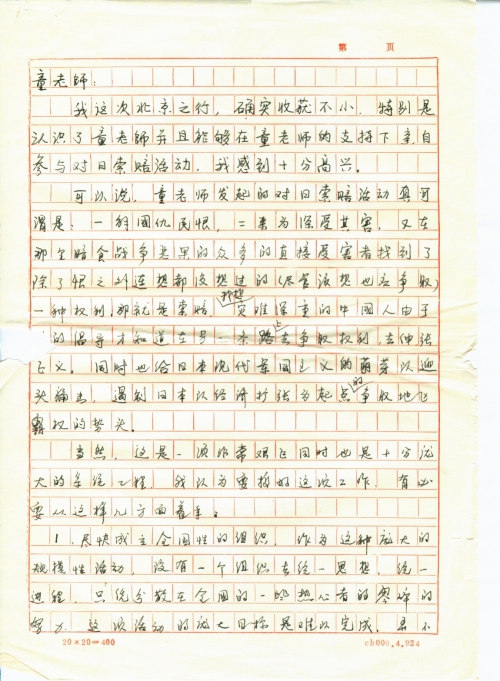 第 页
童老師：
我这次北京之行，确实收获不小，特别是
认识了童老師并且能够在童老师的支持下亲自
参与对日索赔活动，我感到十分高兴。
可以说，童老师发起的对日索赔活动真可
谓是：一報国仇民恨，二来为深受其害，又在
那里暗食战争恶果的众多的直接受害者找到了
除了恨之外连想都没想过的（尽管该想也去争取）
一种权利，那就是索赔。那些灾难深重的中国人由于
的倡导才知道在另一条路上去争取权利，去伸张
正义。同时也给日本现代军国主义的萌芽以迎
头痛击，遏制日本以经济扩张为起点的争取地位
霸权的势头。
当然，这是一项非常艰巨同时也是十分浩
大的系统工程，我认为要搞好这次工作，有必
要从这样几方面着手。
1. 尽快成立全国性的组织，作为这种庞大的
规模性活动，没有一个组织去统一思想，统一
进程，只能分散在全国的一些热心者的零碎的
努力，这次活动的远大目标是难以完成，是不
20×20=400
ch006.4.924